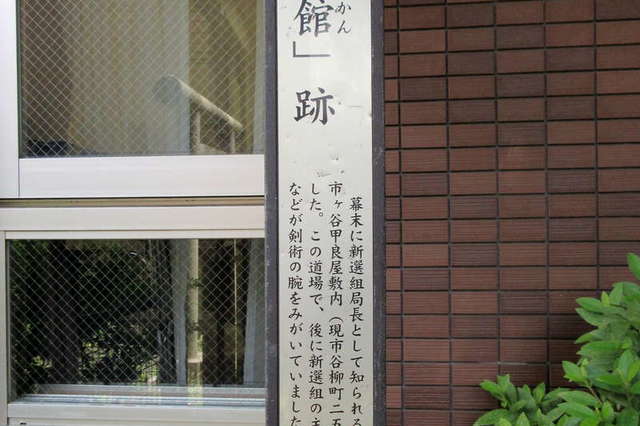 かん
館」跡
幕末に新選組局長として知られる
市ヶ谷甲良屋敷内（現市谷柳町二五
した。この道場で、後に新選組の
などが剣術の腕をみがいていました